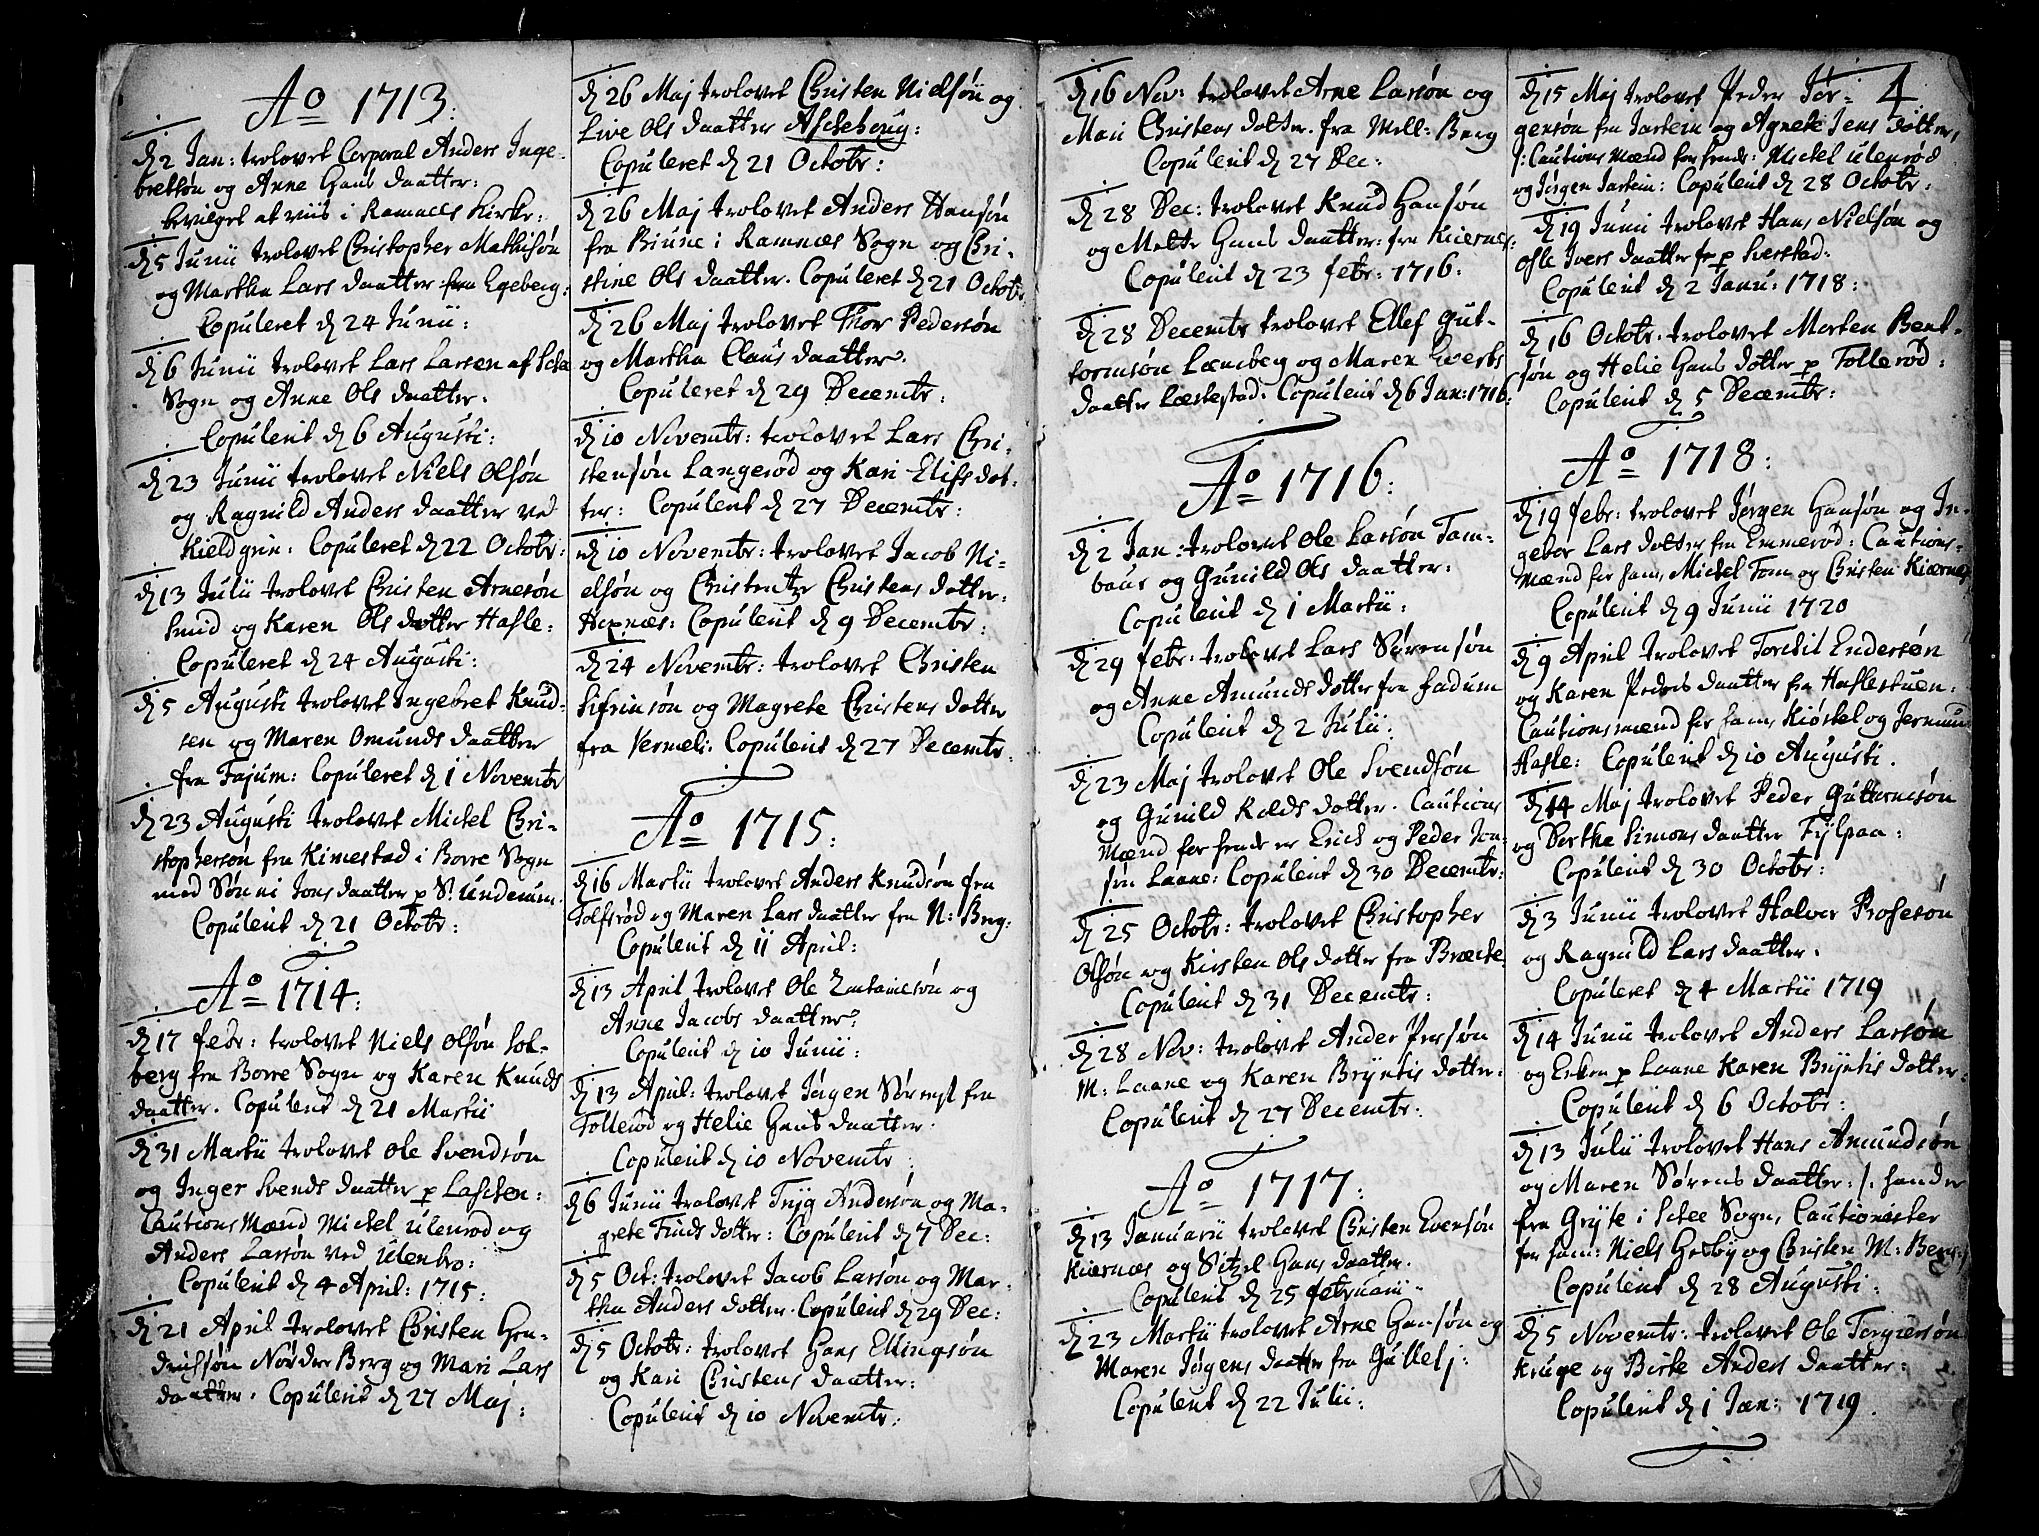 Ao 1713:
d 2 Jan: trolovet Corporal Anders Inge-
bretsøn og Anne Hans daatter:
bevilget at viis i Ramnes Kirke:
d 5 Junii trolovet Christopher Mathisøn
og Martha Lars daatter fra Egeberg:
Copuleret d 24 Junii:
d 6 Junii trolovet Lars Larsen af
Sogn og Anne Ols daatter.
Copulerit d 6 Augusti:
d 23 Junii trolovet Niels Olsøn
og Ragnild Anders daatter ved
Kieldgrin: Copuleret d 22 Octobr:
d 13 Julii trolovet Christen Arnesøn
Smid og Karen Ols dotter Hasle:
Copuleret d 24 Augusti:
d 5 Augusti trolovet Ingebret Knud-
sen og Maren Omunds daatter
fra Fajum: Copuleret d 1 Novembr
d 23 Augusti trolovet Michel Chri-
stophersøn fra Kimestad i Borre Sogn
med Sønni Jons daatter p S. Underum.
Copulerit d 21 Octobr:
Ao 1714:
d 17 febr: trolovet Niels Olsøn Sol-
berg fra Borre Sogn og Karen Knuds
daatter. Copulerit d 21 Martii
d 31 Martii trolovet Ole Svendsøn
og Inger Svends daatter p Laschen:
Cautions Mænd Michel Ulenrød og
Anders Larsøn ved Ulenbro:
Copulerit d 4 April: 1715:
d 21 April trolovet Christen Hen-
drichsøn Nørdre Berg og Mari Lars
daatter. Copulerit d 27 Maj:
d 26 Maj trolovet Christen Nielsøn og
Live Ols daatter Ascheboug:
Copuleret d 21 Octobr:
d 26 Maj trolovet Anders Hansøn
fra Biune i Ramnæs Sogn og Chri-
stine Ols daatter. Copuleret d 21 Octobr
d 26 Maj trolovet Thor Pedersøn
og Martha Claus daatter.
Copuleret d 29 Decembr:
d 10 Novembr: trolovet Lars Chri-
stensøn Langerød og Kari Elifs dot-
ter: Copulerit d 27 Decembr:
d 10 Novembr: trolovet Jacob Ni-
elsøn og Christentze Christens dotter.
Axnæs: Copulerit d 9 Decembr:
d 24 Novembr: trolovet Christen
Sifrinsøn og Magrete Christens dotter
fra Vermeli: Copulerit d 27 Decembr.
Ao 1715:
d 16 Martii trolovet Anders Knudsøn fra
Tolfsrød og Maren Lars daatter fra N: Berg:
Copulerit d 11 April:
d 13 April trolovet Ole og
Anne Jacobs daatter.
Copulerit d 10 Junii:
d 13 April: trolovet Jørgen Sørensøn fra
Tollerød og Helie Hans daatter.
Copulerit d 10 Novembr
d 6 Junii trolovet Tryg Andersøn og Ma-
grete Finds dotter: Copulerit d 7 Dec:
d 5 Oct: trolovet Jacob Larsøn og Mar-
tha Anders dotter. Copulerit d 29 Dec:
d 5 Octobr: trolovet Hans Ellingsøn
og Kari Christens daatter:
Copulerit d 10 Novembr:
d 16 Nov: trolovet Arne Larsøn og
Mari Christens dotter. fra Mell: Berg
Copulerit d 27 Dec:
d 28 Dec: trolovet Knud Hansøn
og Mette Hans daatter: fra Kiernes:
Copulerit d 23 febr: 1716:
d 28 Decembr trolovet Ellef Gut-
tormsøn Læneberg og Maren Everts
daatter Læskestad. Copulerit d 6 Jan: 1716:
Ao 1716:
d 2 Jan: trolovet Ole Larsøn Tam-
bour og Gunild Ols daatter:
Copulerit d 1 Martii:
d 29 febr: trolovet Lars Sørensøn
og Anne Amunds dotter fra fadum
Copulerit d 2 Julii:
d 23 Maj trolovet Ole Svendsøn
og Gunild Rolds dotter. Cautions
Mænd for hende er Erich og Peder Jon-
søn Laane: Copulerit d 30 Decembr:
d 25 Octobr: trolovet Christopher
Olsøn og Kirsten Ols dotter fra Brecke.
Copulerit d 31 Decembr:
d 28 Nov: trolovet Ander Persøn
M: Laane og Karen Bryntis dotter:
Copulerit d 27 Decembr:
Ao 1717:
d 13 Januarii trolovet Christen Evensøn
Kiernæs og Sitzel Hans daatter.
Copulerit d 25 februarii
d 23 Martii trolovet Arne Hansøn og
Maren Jørgens daatter fra Gullelj:
Copulerit d 22 Julii:
4
d 15 Maj trolovet Peder Jør-
gensøn fra Jarlein og Agnete Jens dotter,
/: Cautions Mænd for hende: Michel Ulenrød
og Jørgen Jarlein: Copulerit d 28 Octobr:
d 19 Junii trolovet Hans Nielsøn og
Osle Ivers daatter fr p Sverstad:
Copulerit d 2 Janu: 1718:
d 16 Octobr. trolovet Morten Bent-
søn og Helie Hans dotter p Tollerød:
Copulerit d 5 Decembr:
Ao 1718:
d 19 febr: trolovet Jørgen Hansøn og In-
gebor Lars dotter fra Emmerød: Cautions-
Mænd for ham, Michel Fom og Christen Kiærnes
Copulerit d 9 Junii 1720
d 9 April trolovet Torckil Endersøn
og Karen Peders daatter fra Haslestuen:
Cautionsmænd for ham, Kiøstel og Jermun
Hasle: Copulerit d 10 Augusti.
d 14 Maj trolovet Peder Guttormsøn
og Berthe Simons daatter Fylpaa:
Copulerit d 30 Octobr:
d 3 Junii trolovet Halvor Rofesøn
og Ragnild Lars daatter.
Copuleret d 4 Martii 1719
d 14 Junii trolovet Anders Larsøn
og Enken p Laane Karen Bryntis dotter:
Copulerit d 6 Octobr:
d 13 Julii trolovet Hans Amundsøn
og Maren Sørens daatter: /: hand er
fra Gryte i Schee Sogn, Cautionister
for ham: Niels Horby og Christen M: Berg:/
Copulerit d 28 Augusti:
d 5 Novembr: trolovet Ole Torgiersøn
Kruge og Birte Anders daatter:
Copulerit d 1 Jan: 1719.